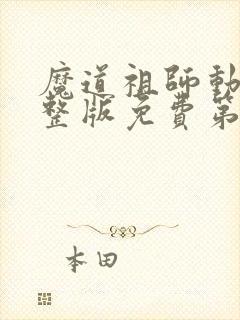 魔道祖師動
整版免費第
本田